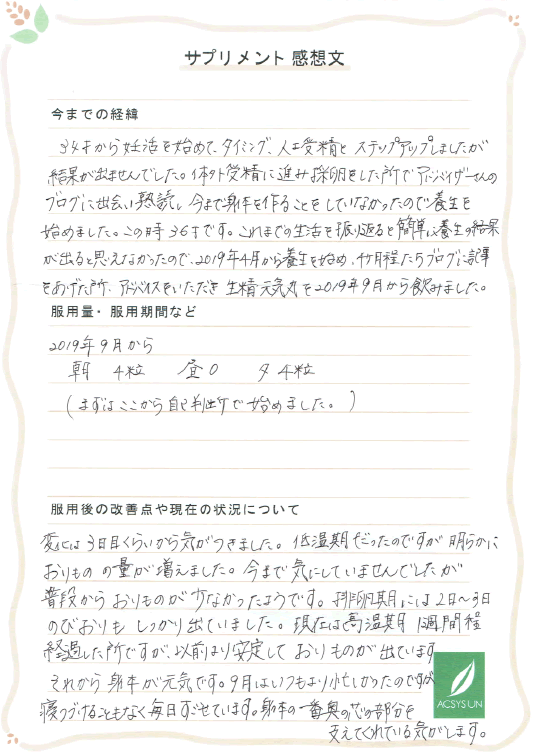 サプリメント 感想文
今までの経緯
34才から妊活を始めて、タイミング、人工受精とステップアップしましたが
結果が出ませんでした。体外受精に進み採卵をした所でアドバイザーさんの
ブログに出会い熟読し、今まで身体を作ることをしていなかったので養生を
始めました。この時36才です。これまでの生活を振り返ると簡単に養生の結果
が出ると思えなかったので、2019年4月から養生を始め、4ヶ月程たちブログに記事
をあげた所、アドバイスをいただき 生精元気丸を2019年9月から飲みました。
服用量・服用期間など
2019年9月から
朝 4粒 昼0 夕4粒
(まずはここから自己判断で始めました。)
服用後の改善点や現在の状況について
変化は3日目くらいから気がつきました。低温期だったのですが 明らかに
おりもの の量が増えました。今まで気にしていませんでしたが
普段から おりものが 少なかったようです。排卵期には2日〜3日
のびおりも しっかり出ていました。現在は高温期 1週間程
経過した所ですが、以前より安定して おりものが出ています
それから 身体が元気です。9月はいつもより忙しかったのですが
寝つづけることもなく毎日すごせています。身体の一番奥の芯の部分を
支えてくれている気がします。
ACSYSUN